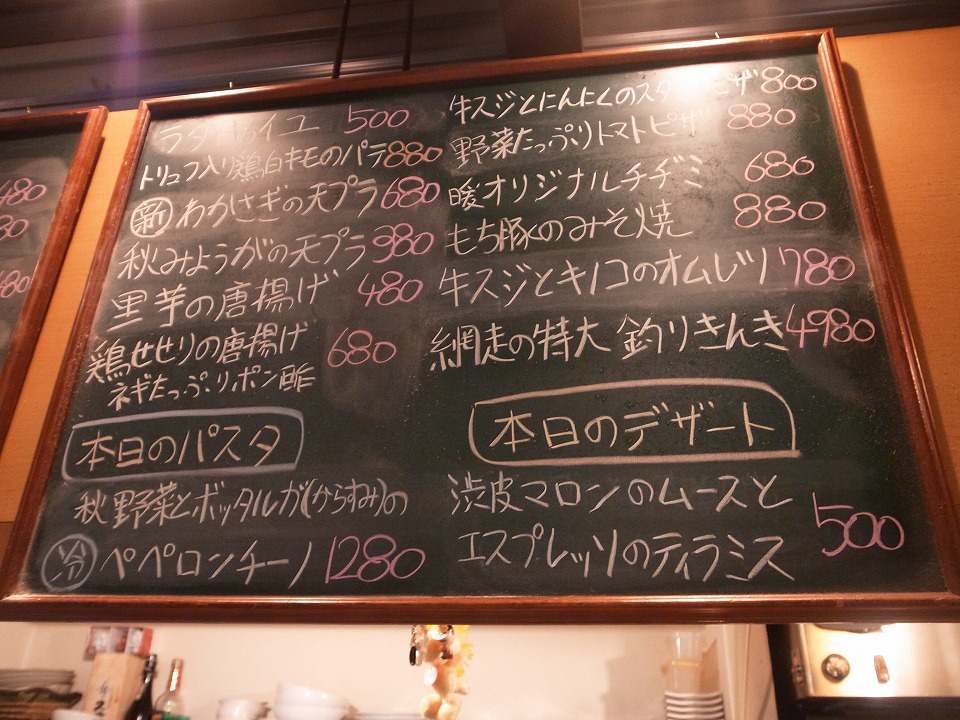 480
80
480
ラタトゥイユ 500
トリュフ入り鶏白キモのパテ 880
新 わかさぎの天プラ 680
秋みょうがの天プラ 380
里芋の唐揚げ 480
鶏せせりの唐揚げ 680
ネギたっぷりポン酢
本日のパスタ
秋野菜とボッタルガ(からすみ)の
冷 ペペロンチーノ 1280
牛スジとにんにくのスタミナピザ 800
野菜たっぷりトマトピザ 880
暖オリジナルチヂミ 680
もち豚のみそ焼 880
牛スジとキノコのオムレツ 780
網走の特大 釣りきんき 4980
本日のデザート
渋皮マロンのムースと
エスプレッソのティラミス 500